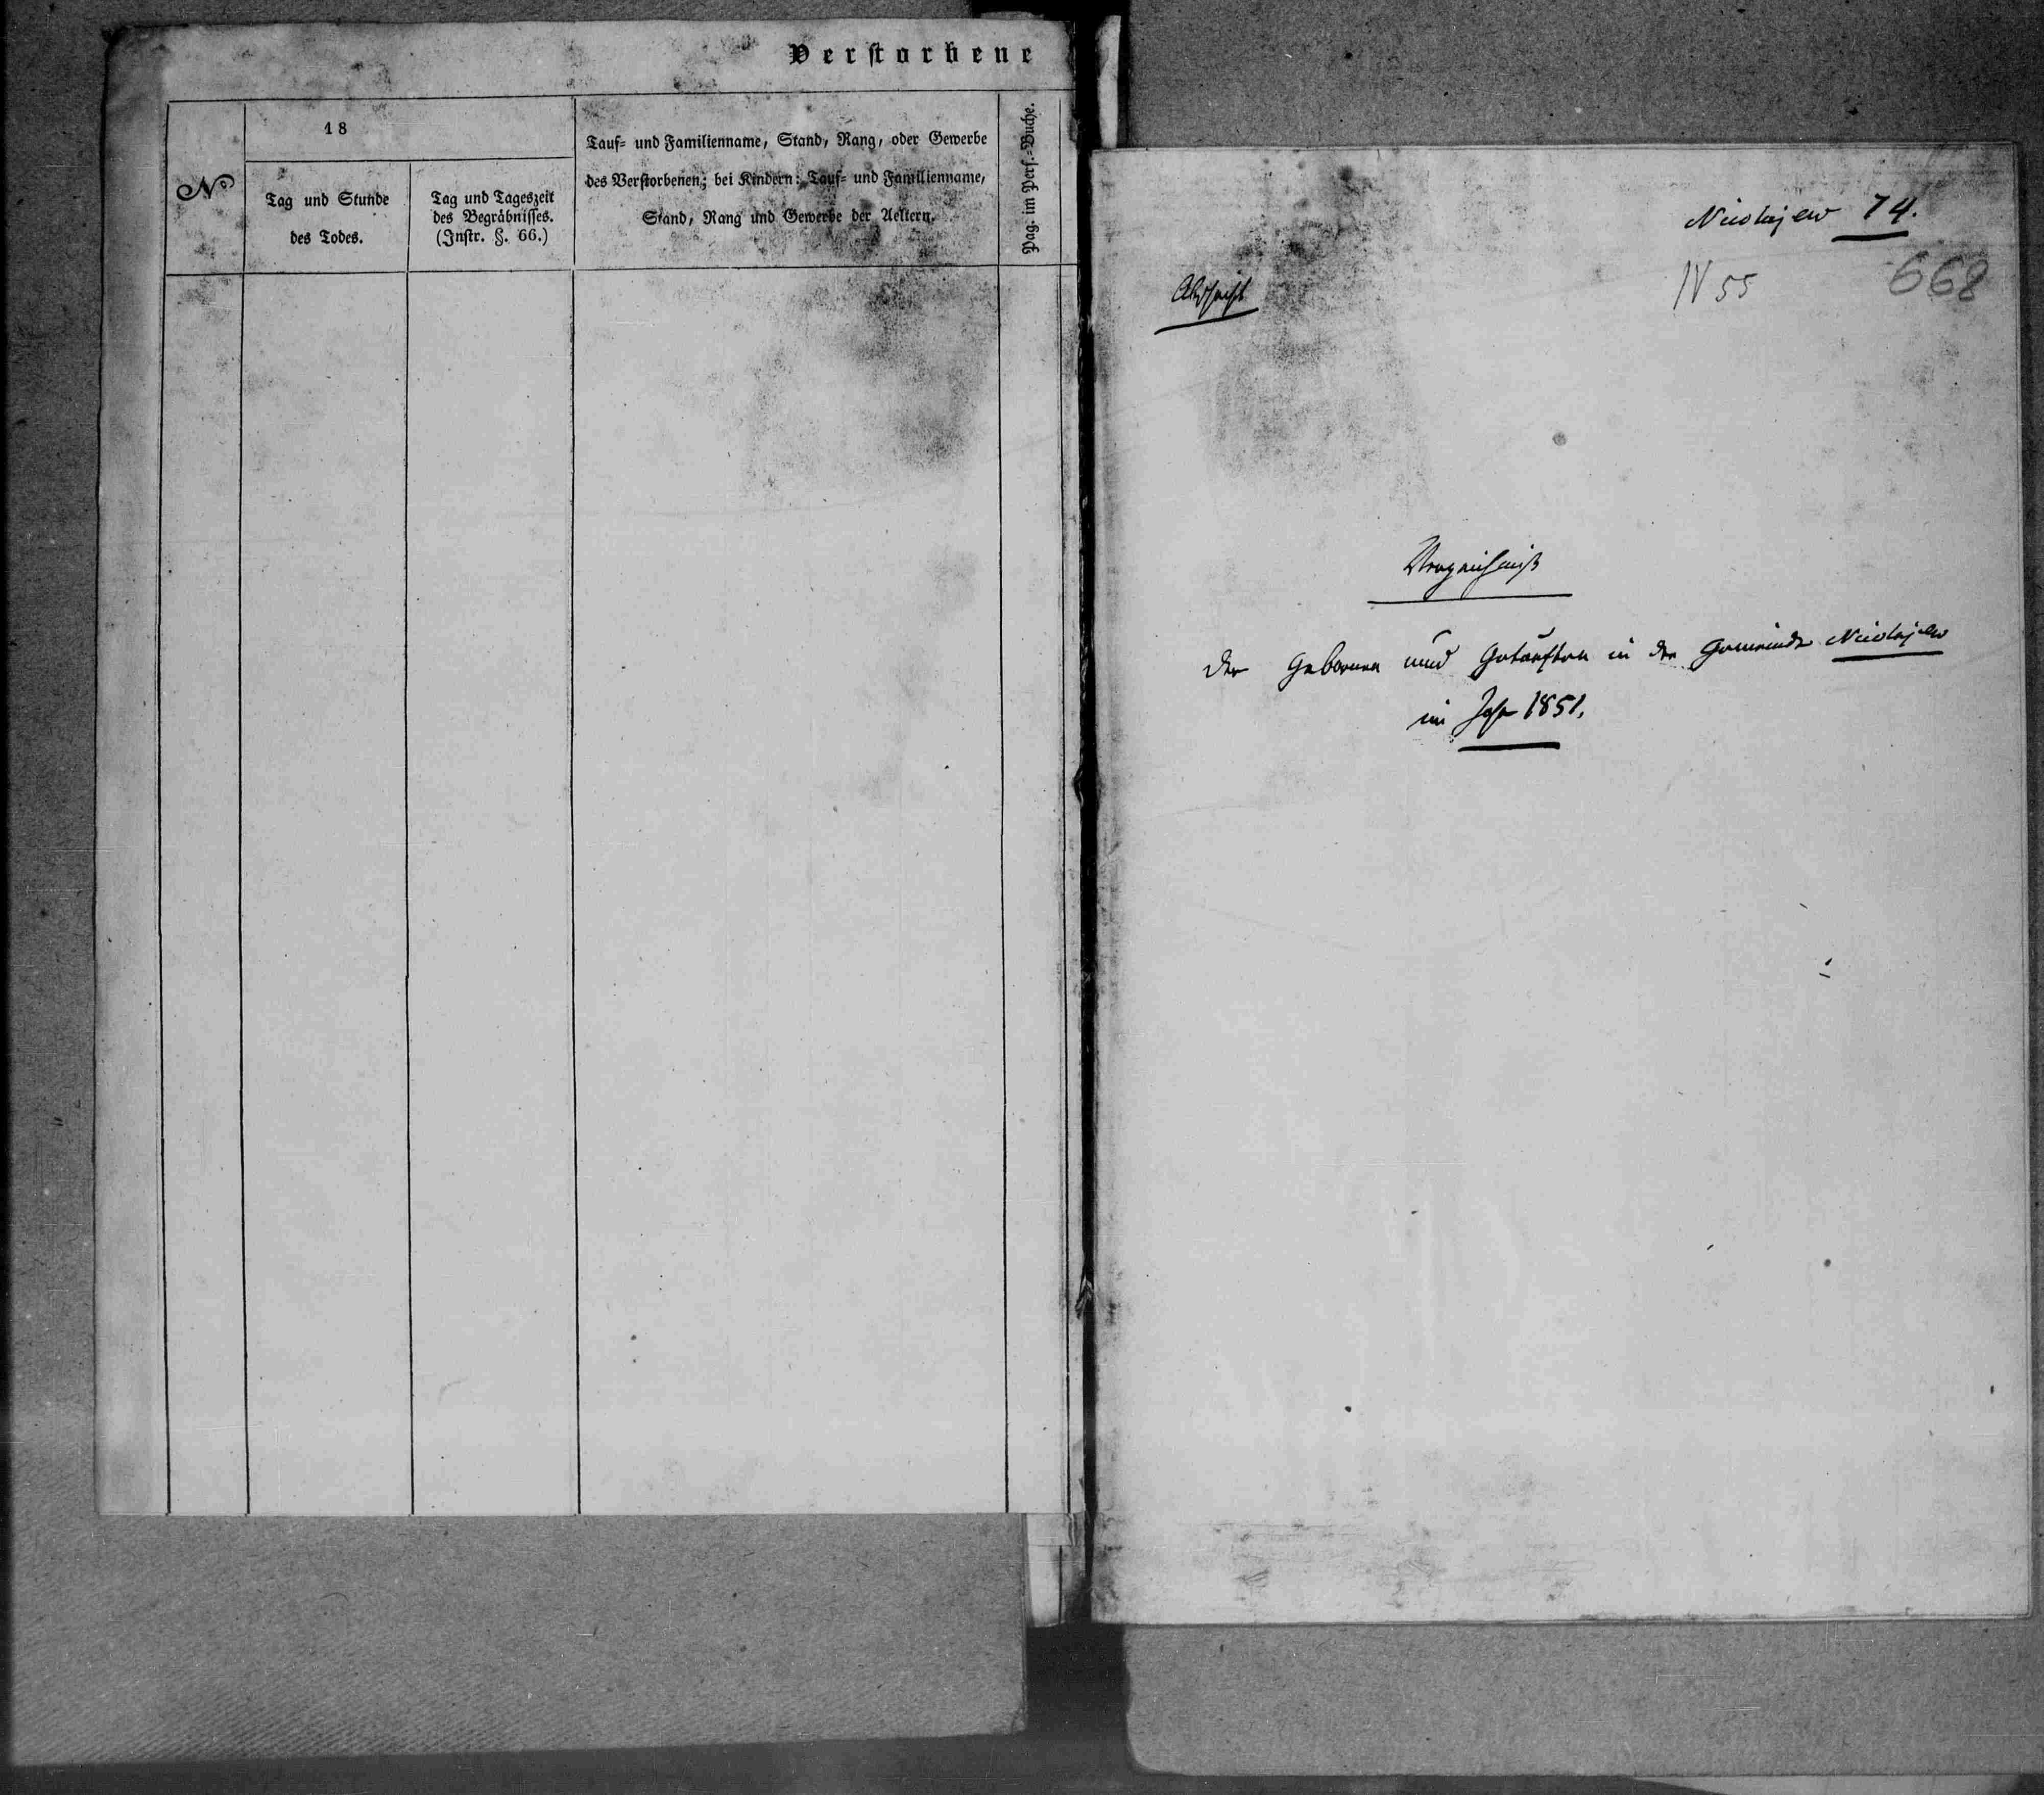 Verstorbene
No
18
Tag und Stunde
des Todes.
Tag und Tageszeit
des Begräbnisses.
(Instr. §. 66.)
Tauf- und Familienname, Stand, Rang, oder Gewerbe
des Verstorbenen; bei Kindern: Tauf- und Familienname,
Stand, Rang und Gewerbe der Aeltern.
Pag. im Pers.-Buche.
Nicolajew 74.
IV 55
668
Abschrift
Verzeichniß
der Gebornen und Getauften in der Gemeinde Nicolajew
im Jahr 1851.